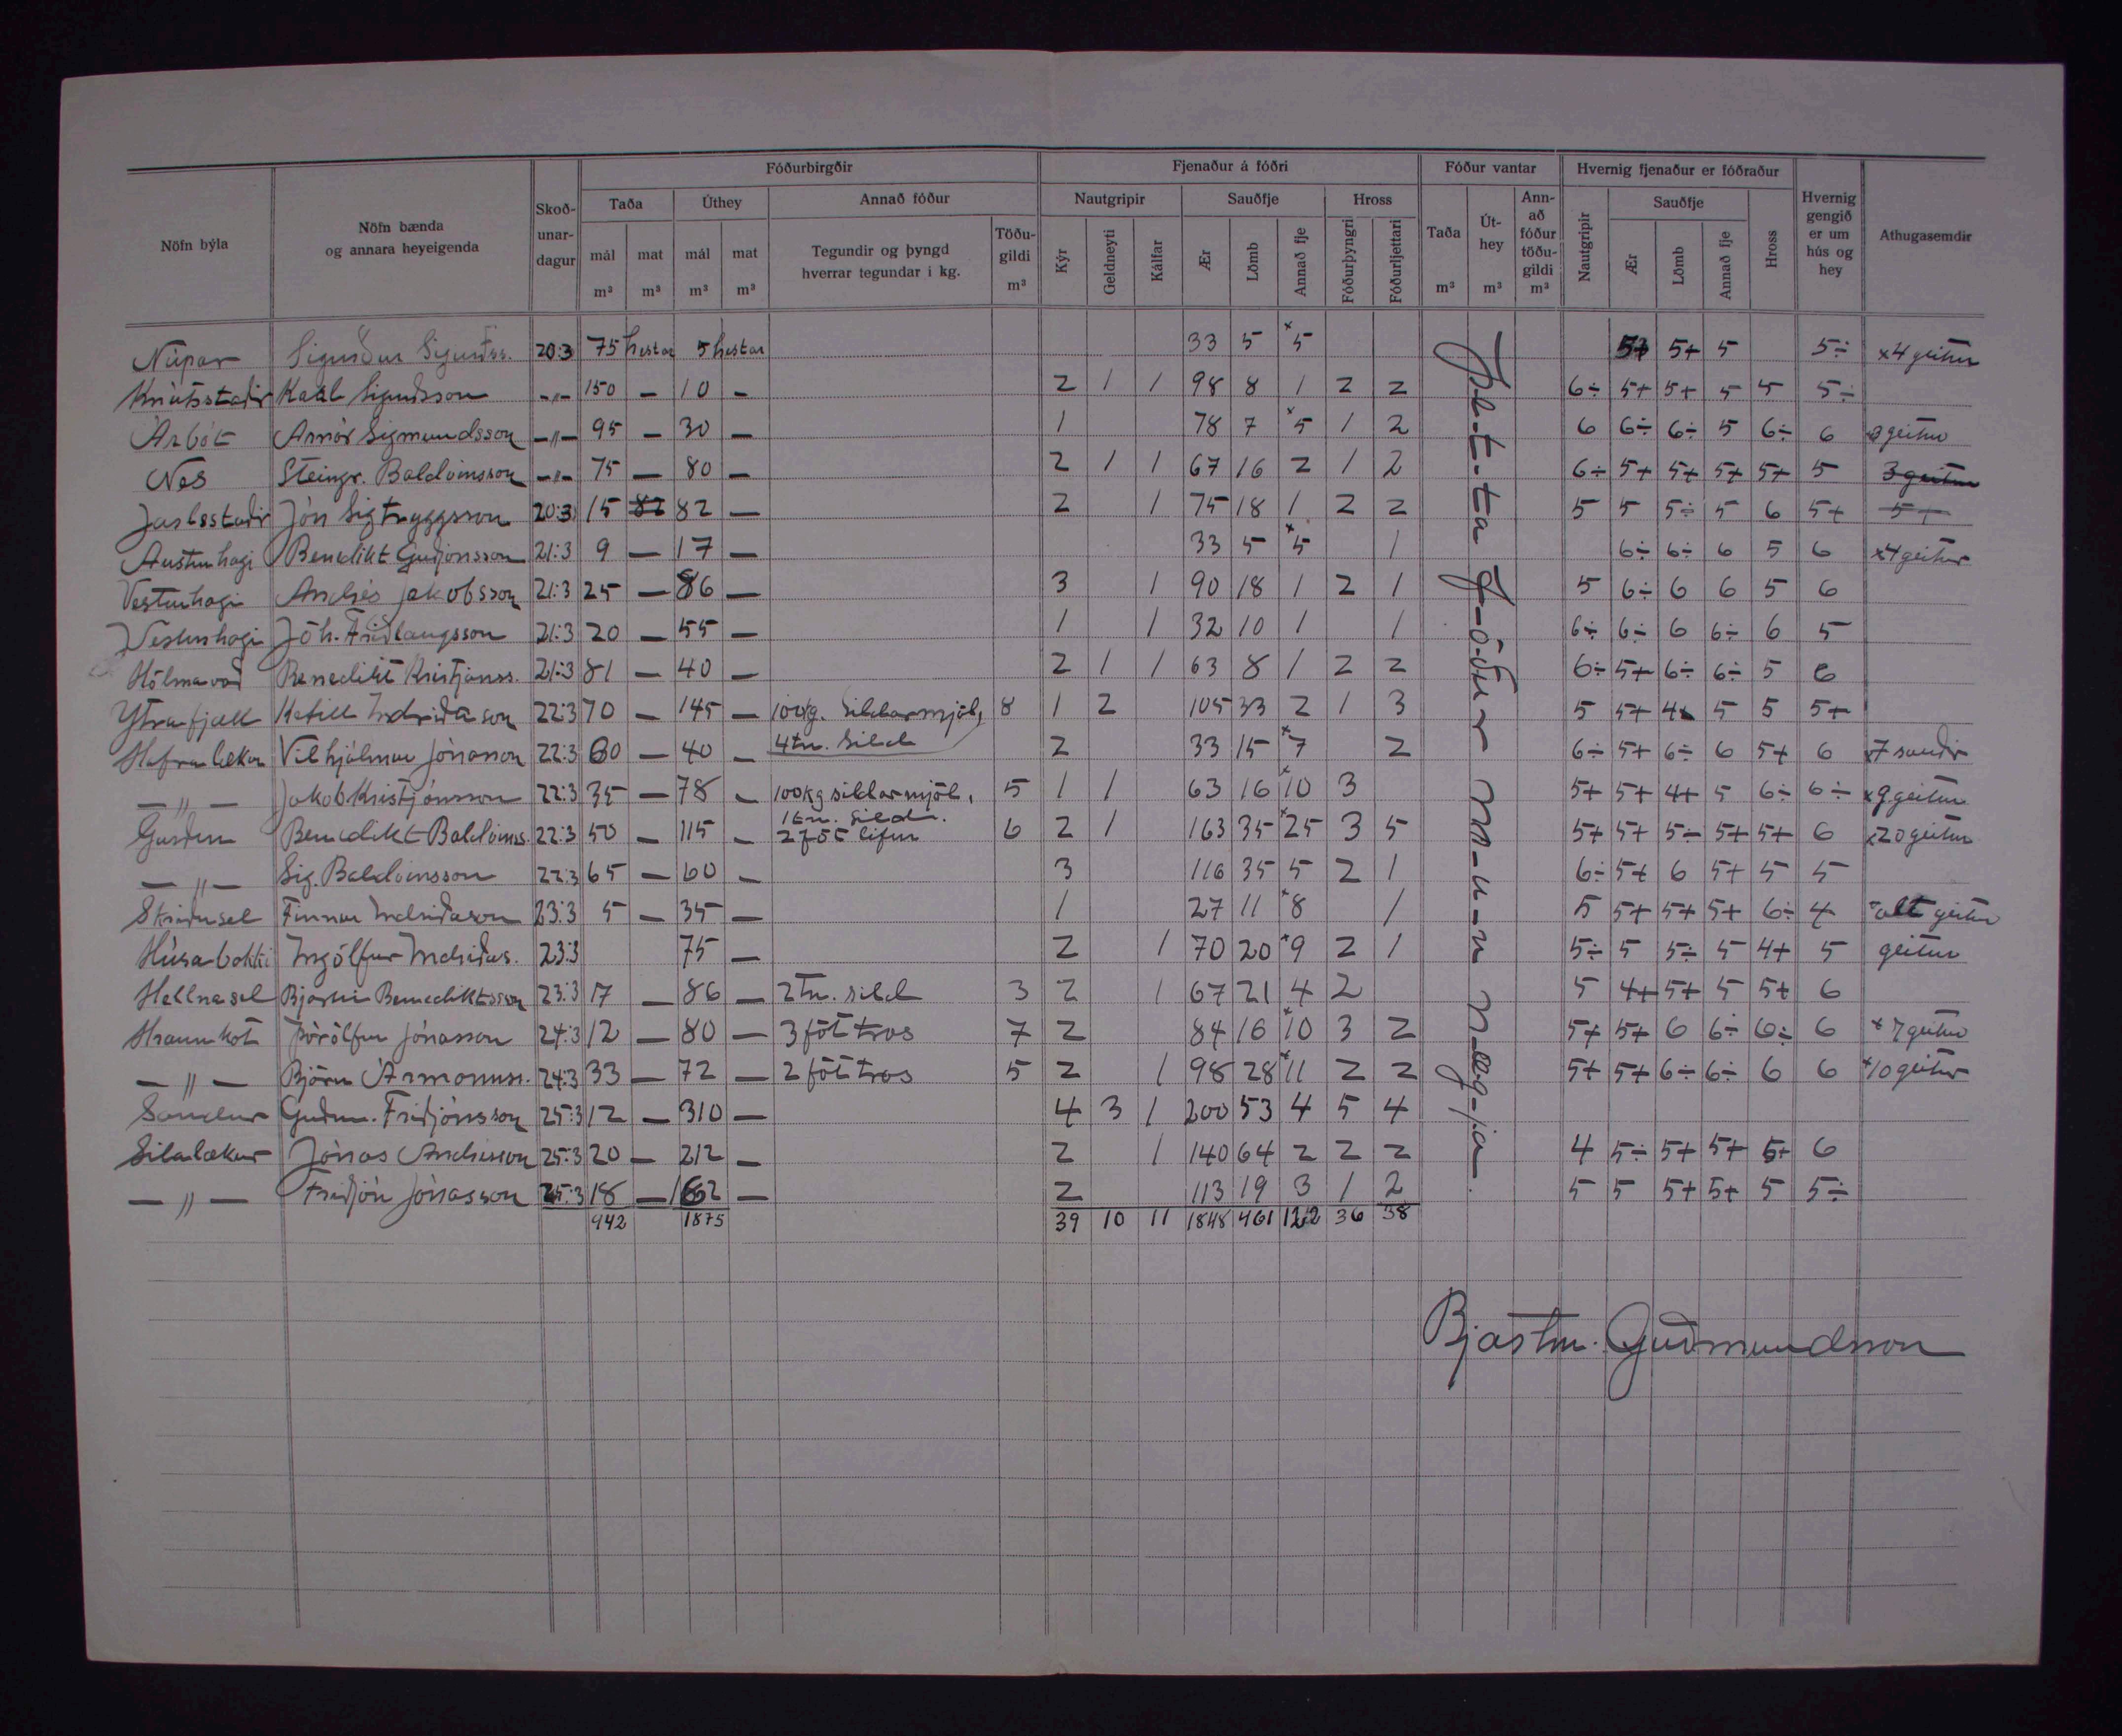 Fóðurbirgðir Fjenaður á fóðri Fóður vantar Hvernig fjenaður er fóðraður
Nöfn býla Nöfn bænda og annara heyeigenda Skoð-unar-dagur Taða Úthey Annað fóður Nautgripir Sauðfje Hross Taða Út-hey Ann-að fóður töðu-gildi m³ Nautgripir Sauðfje Hross Hvernig gengið er um hús og hey Athugasemdir
mál m³ mat mál m³ mat m³ Tegundir og þyngd hverrar tegundar í kg. Töðu-gildi m³ Kýr Geldneyti Kálfar Ær Lömb Annað fje Fóðurþyngri Fóðurljettari m³ m³ Ær Lömb Annað fje
Núpar Sigurður Sigurðss. 20:3 75 hestar 5 hestar 33 5 x5 5+ 5+ 5 5÷ x4 geitur
Knútsstaðir Karl Sigurðsson -"- 150 — 10 — 2 1 1 98 8 1 2 2 6÷ 5+ 5+ 5 5 5÷
Árbót Arnór Sigmundsson -"- 95 — 30 — 1 78 7 x5 1 2 6 6÷ 6÷ 5 6÷ 6 3 geitur
Nes Steingr. Baldvinsson -"- 75 — 80 — 2 1 1 67 16 2 1 2 6÷ 5+ 5+ 5+ 5+ 5 3 geitur
Jarlsstaðir Jón Sigtryggsson 20:3 15 82 82 — 2 1 75 18 1 2 2 5 5 5÷ 5 6 5+ 5+
Austurhagi Benedikt Guðjónsson 21:3 9 — 17 — 33 5 x5 1 6÷ 6÷ 6 5 6 x4 geitur
Vesturhagi Andrés Jakobsson 21:3 25 — 86 — 3 1 90 18 1 2 1 5 6÷ 6 6 5 6
Vesturhagi Jóh. Friðlaugsson 21:3 20 — 55 — 1 1 32 10 1 1 6÷ 6÷ 6 6÷ 6 5
Hólmavað Benedikt Kristjánss. 21:3 81 — 40 — 2 1 1 63 8 1 2 2 6÷ 5+ 6÷ 6÷ 5 6
Ytrafjall Ketill Indriðason 22:3 70 — 145 — 100kg. síldarmjöl, 8 1 2 105 33 2 1 3 5 5+ 4+ 5 5 5+
4tn. síld
Hafralækur Vilhjálmur Jónasson 22:3 60 — 40 — 2 33 15 x7 2 6÷ 5+ 6÷ 6 5+ 6 x7 sauðir
— " — Jakob Kristjónsson 22:3 35 — 78 — 100kg síldarmjöl, 5 1 1 63 16 x10 3 5+ 5+ 4+ 5 6÷ 6÷ x9 geitur
1tn. síldr.
Garður Benedikt Baldvinss. 22:3 50 — 115 — 2 föt lifur 6 2 1 163 35 x25 3 5 5+ 5+ 5÷ 5+ 5+ 6 x20 geitur
— " — Sig. Baldvinsson 22:3 65 — 60 — 3 116 35 5 2 1 6÷ 5+ 6 5+ 5 5
Skriðusel Finnur Indriðason 23:3 5 — 35 — 1 27 11 x8 1 5 5+ 5+ 5+ 6÷ 4 x allt geitur
Húsabakki Ingólfur Indriðas. 23:3 75 — 2 1 70 20 x9 2 1 5÷ 5 5÷ 5 4+ 5 geitur
Hellnasel Bjarni Benediktsson 23:3 17 — 86 — 2 tn. síld 3 2 1 67 21 4 2 5 4+ 5+ 5 5+ 6
Hraunkot Þórólfur Jónasson 24:3 12 — 80 — 3 föt tros 7 2 84 16 x10 3 2 5+ 5+ 6 6÷ 6÷ 6 x7 geitur
— " — Björn Ármannss. 24:3 33 — 72 — 2 föt tros 5 2 1 98 28 x11 2 2 5+ 5+ 6÷ 6÷ 6 6 x10 geitur
Sandur Guðm. Friðjónsson 25:3 12 — 310 — 4 3 1 200 53 4 5 4
Sílalækur Jónas Andrésson 25:3 20 — 212 — 2 1 140 64 2 2 2 4 5÷ 5+ 5+ 5+ 6
— " — Friðjón Jónasson 25:3 18 — 162 — 2 113 19 3 1 2 5 5 5+ 5+ 5 5÷
942 1875 39 10 11 1848 461 122 36 38
Þ-e-t-ta f-ó-ður m-u-n næg-ja.
Bjartm. Guðmundsson